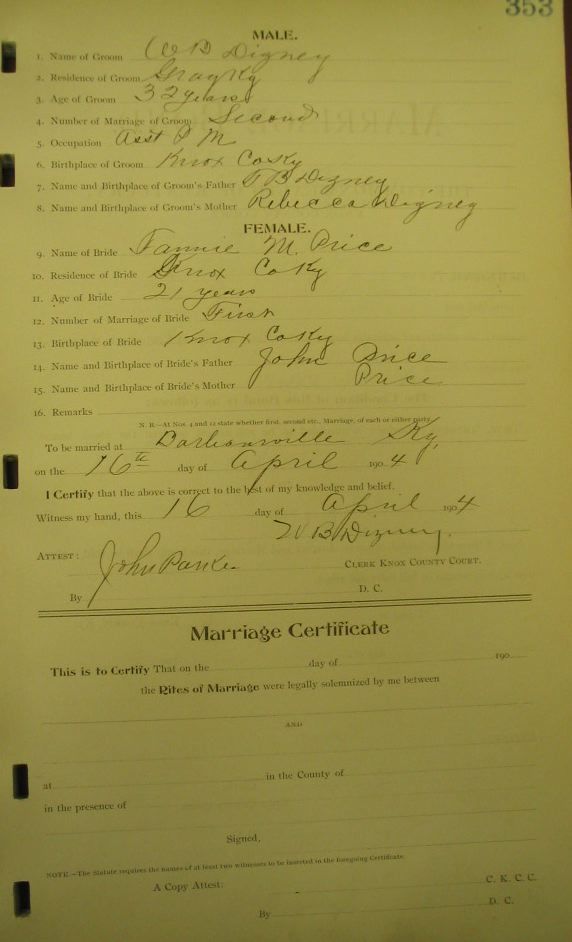 353
MALE.
1. Name of Groom W B Digney
2. Residence of Groom Gray Ky
3. Age of Groom 32 years
4. Number of Marriage of Groom Second
5. Occupation Asst P M
6. Birthplace of Groom Knox Co Ky
7. Name and Birthplace of Groom's Father T B Dizney
8. Name and Birthplace of Groom's Mother Rebecca Digney
FEMALE.
9. Name of Bride Fannie M. Price
10. Residence of Bride Knox Co Ky
11. Age of Bride 21 years
12. Number of Marriage of Bride First
13. Birthplace of Bride Knox Co Ky
14. Name and Birthplace of Bride's Father John Price
15. Name and Birthplace of Bride's Mother Price
16. Remarks
N. B.—At Nos. 4 and 12 state whether first, second etc., Marriage, of each or either party.
To be married at Barbourville Ky,
on the 16th day of April 1904
I Certify that the above is correct to the best of my knowledge and belief.
Witness my hand, this 16 day of April 1904
W B Dizney.
ATTEST: John Parker
CLERK KNOX COUNTY COURT.
By D. C.
Marriage Certificate
This is to Certify That on the day of 190
the Rites of Marriage were legally solemnized by me between
AND
at in the County of
in the presence of
Signed,
NOTE.—The Statute requires the names of at least two witnesses to be inserted in the foregoing Certificate.
A Copy Attest: C. K. C. C.
By D. C.